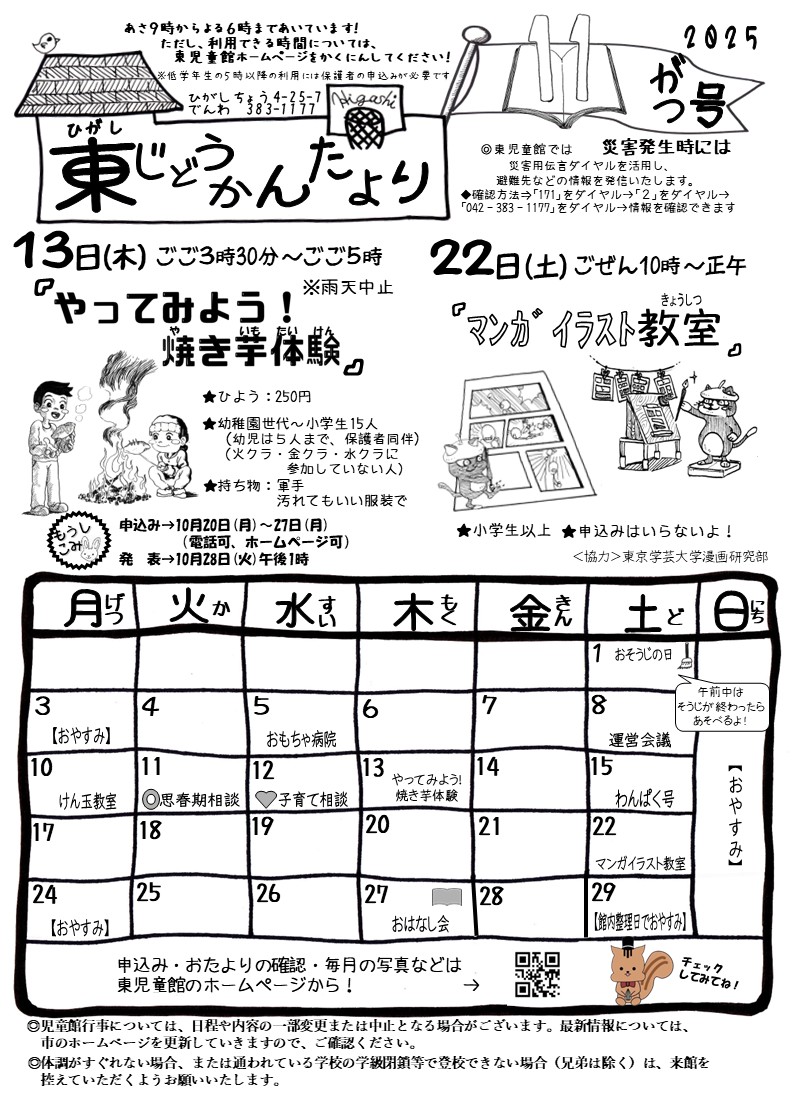 あさ9時からよる6時まであいています!
ただし、利用できる時間については、
東児童館ホームページをかくにんしてください!
※低学年生の5時以降の利用には保護者の申込みが必要です
ひがしちょう4-25-7
でんわ 383-1177
Higashi
ひがし
東じどうかんたより
2025
11がつ号
◎東児童館では 災害発生時には
災害用伝言ダイヤルを活用し、
避難先などの情報を発信いたします。
◆確認方法⇒「171」をダイヤル→「2」をダイヤル→
「042-383-1177」をダイヤル→情報を確認できます
13日(木) ごご3時30分~ごご5時
『やってみよう! ※雨天中止
や いも たい けん
焼き芋体験』
★ひよう:250円
★幼稚園世代~小学生15人
(幼児は5人まで、保護者同伴)
(火クラ・金クラ・水クラに
参加していない人)
★持ち物:軍手
汚れてもいい服装で
もうしこみ
申込み→10月20日(月)~27日(月)
(電話可、ホームページ可)
発 表→10月28日(火)午後1時
22日(土)ごぜん10時~正午
きょうしつ
『マンガイラスト教室』
★小学生以上 ★申込みはいらないよ!
<協力>東京学芸大学漫画研究部
月げつ 火か 水すい 木もく 金きん 土ど 日にち
1 おそうじの日
午前中は
そうじが終わったら
あそべるよ!
3 4 5 6 7 8
【おやすみ】 おもちゃ病院 運営会議
10 11 12 13 14 15
けん玉教室 思春期相談 子育て相談 やってみよう!
焼き芋体験 わんぱく号
【おやすみ】
17 18 19 20 21 22
マンガイラスト教室
24 25 26 27 28 29
【おやすみ】 おはなし会 【館内整理日でおやすみ】
申込み・おたよりの確認・毎月の写真などは
東児童館のホームページから! →
チェック
してみてね!
◎児童館行事については、日程や内容の一部変更または中止となる場合がございます。最新情報については、
市のホームページを更新していきますので、ご確認ください。
◎体調がすぐれない場合、または通われている学校の学級閉鎖等で登校できない場合(兄弟は除く)は、来館を
控えていただくようお願いいたします。